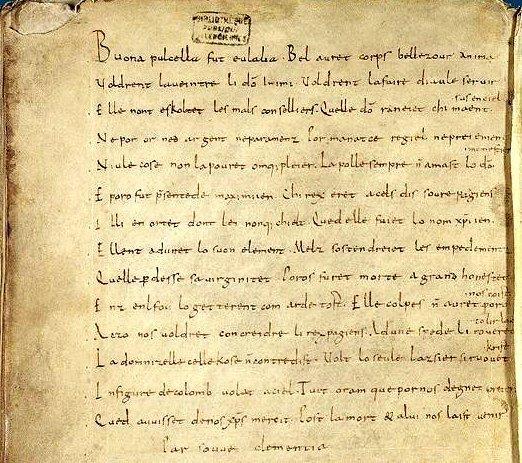 BIBLIOTHEQUE
PUBLIQUE
Buona pulcella fut eulalia. Bel auret corps bellezour anima
Voldrent la veintre li dō inimi. Voldrent la faire diaule seruir
Elle nont eskoltet les mals conselliers. Quelle dō raneiet chi maent
sus en ciel
Ne por or ned argent ne paramenz. Por manatce regiel ne preiement
Niule cose non la pouret omq pleier. La polle sempre n̄ amast lo dō
menestier
E poro fut p̄sentede maximiien. Chi rex eret a cels dis soure pagiens
Illi en ortet dont lei nonq chielt. Qued elle fuiet lo nom xp̄iien.
Ellent adunet lo suon element. Melz sostendreiet les empedementz
Quelle p̄desse sa uirginitet. Poros furet morte a grand honestet
Enz enl fou lo getterent com arde tost. Elle colpes n̄ auret poro
nos coist
A czo nos uoldret concreidre li rex pagiens. Ad une spede li roueret
tolir lo
La domnizelle celle kose n̄ contredist. Volt lo seule lazsier si ruouet
krist
In figure de colomb uolat a ciel. Tuit oram que por nos degnet
Qued auuisset de nos xp̄s mercit. Post la mort & a lui nos laist uenir
Par souue clementia